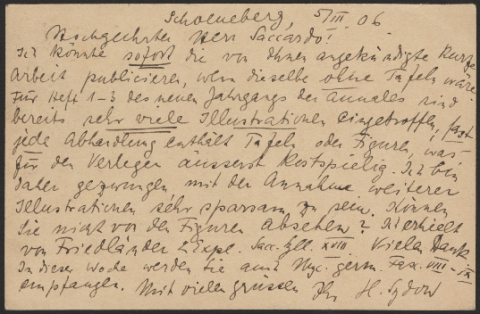 Schoeneberg, 5/III. 06.
Hochgeehrter Herr Saccardo!
Ich könnte sofort die von Ihnen angekündigte kurze
Arbeit publicieren, wenn dieselbe ohne Tafeln wäre.
Für Heft 1-3 des neuen Jahrgangs der Annales sind
bereits sehr viele Illustrationen eingetroffen, fast
jede Abhandlung enthält Tafeln oder Figuren, was
für den Verleger äusserst kostspielig. Ich bin
daher gezwungen mit der Annahme weiterer
Illustrationen sehr sparsam zu sein. Können
Sie nicht von den Figuren absehen? Ich erhielt
von Friedländer Expl. Sacc. Syll. XVIII. Vielen Dank
In dieser Woche werden Sie auch Myc. germ. Fasc. VIII-IX
empfangen. Mit vielen Grüssen Ihr H. Sydow